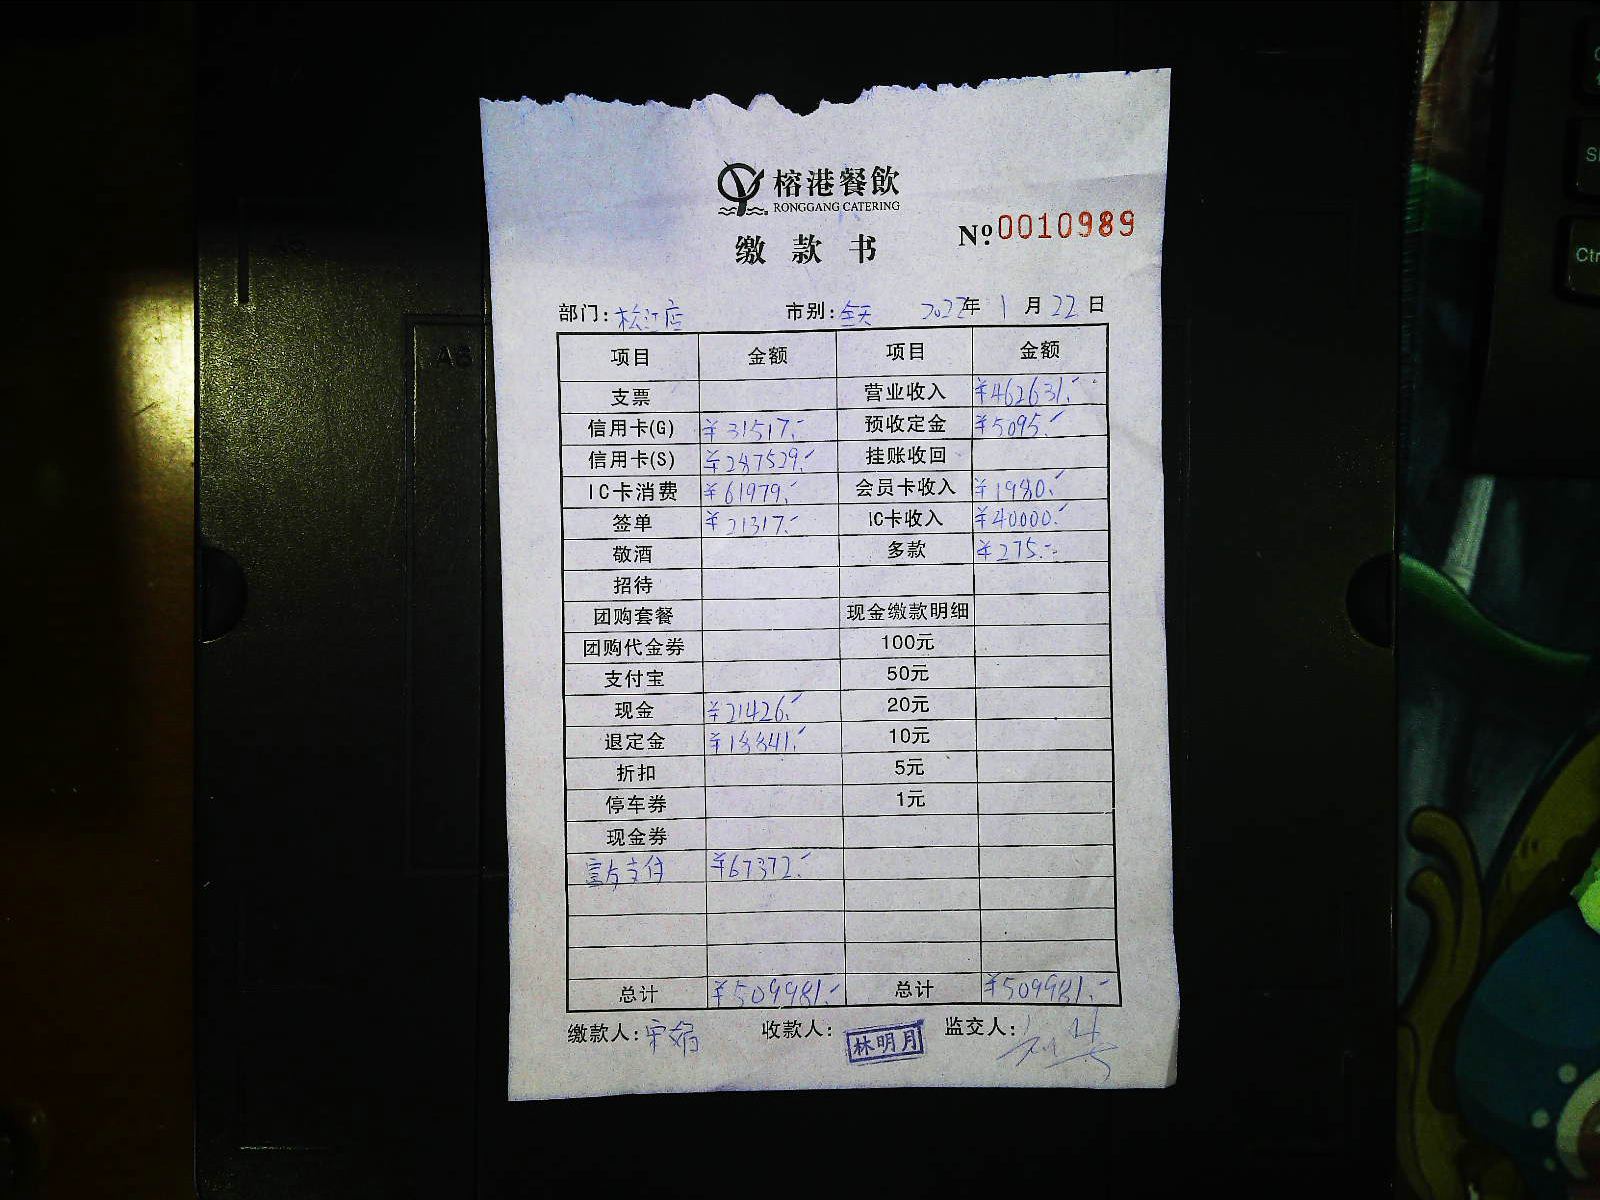 榕港餐飲
RONGGANG CATERING
缴款书 Nº 0010989
部门: 松江店 市别: 全天 2022年 1月 22日
项目 金额 项目 金额
支票 营业收入 ¥462631.-
信用卡(G) ¥31517.- 预收定金 ¥5095.-
信用卡(S) ¥287529.- 挂账收回
IC卡消费 ¥61979.- 会员卡收入 ¥1980.-
签单 ¥21317.- IC卡收入 ¥40000.-
敬酒 多款 ¥275.-
招待
团购套餐 现金缴款明细
团购代金券 100元
支付宝 50元
现金 ¥21426.- 20元
退定金 ¥18841.- 10元
折扣 5元
停车券 1元
现金券
富友支付 ¥67372.-
总计 ¥509981.- 总计 ¥509981.-
缴款人: 宋娟 收款人: 林明月 监交人:
Ctr